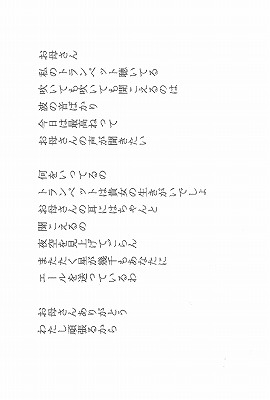 お母さん
私のトランペット聴いてる
吹いても吹いても聞こえるのは
波の音ばかり
今日は最高ねって
お母さんの声が聞きたい
何をいってるの
トランペットは貴女の生きがいでしょ
お母さんの耳にはちゃんと
聞こえるの
夜空を見上げてごらん
またたく星が幾千もあなたに
エールを送っているわ
お母さんありがとう
わたし頑張るから